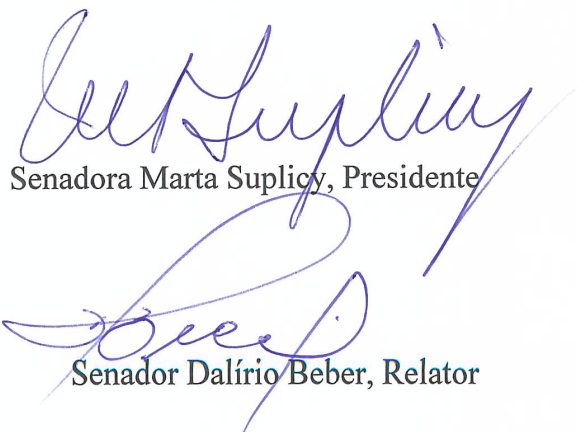 Senadora Marta Suplicy, Presidente
Senador Dalírio Beber, Relator